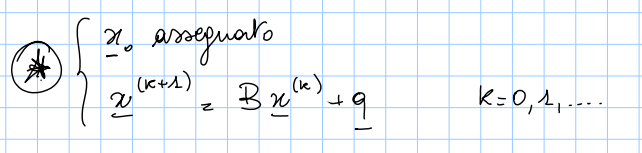 x₀ assegnato
* { x^(k+1) = B x^(k) + q    k=0,1,....